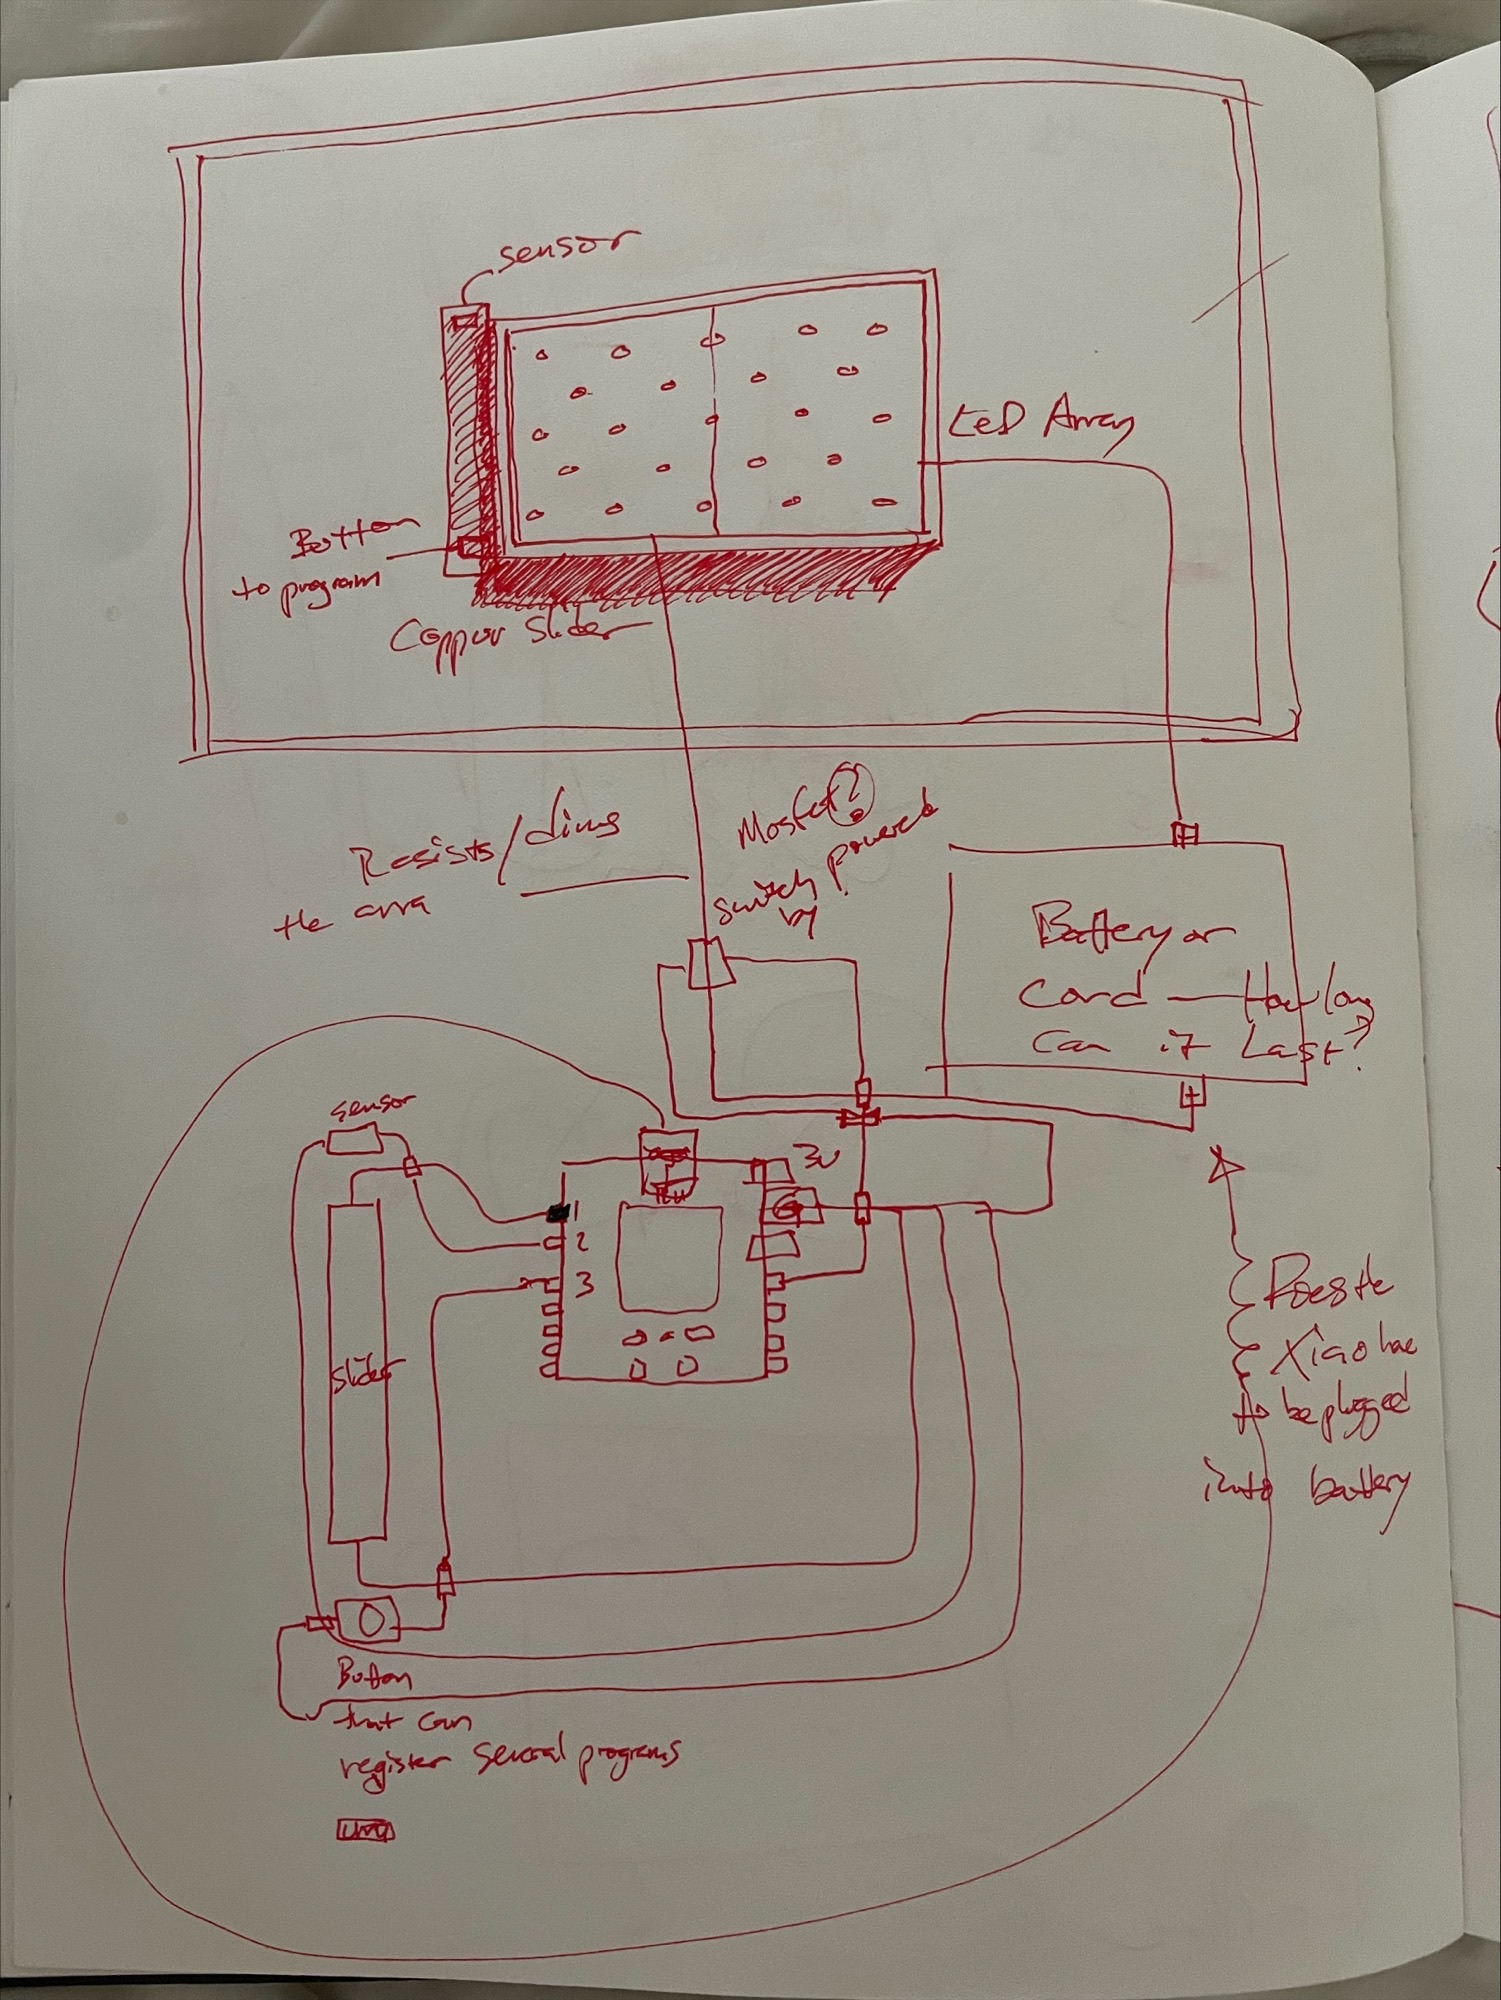 sensor
LED Array
Button
to program
Copper Slider
Resists/dims
the arra
Mosfet?
switch powered
by?
Battery or
Cord — How long
Can it Last?
sensor
3v
1
G
2
3
slider
Does the
Xiao hae
to be plugged
into battery
Button
that can
register several programs